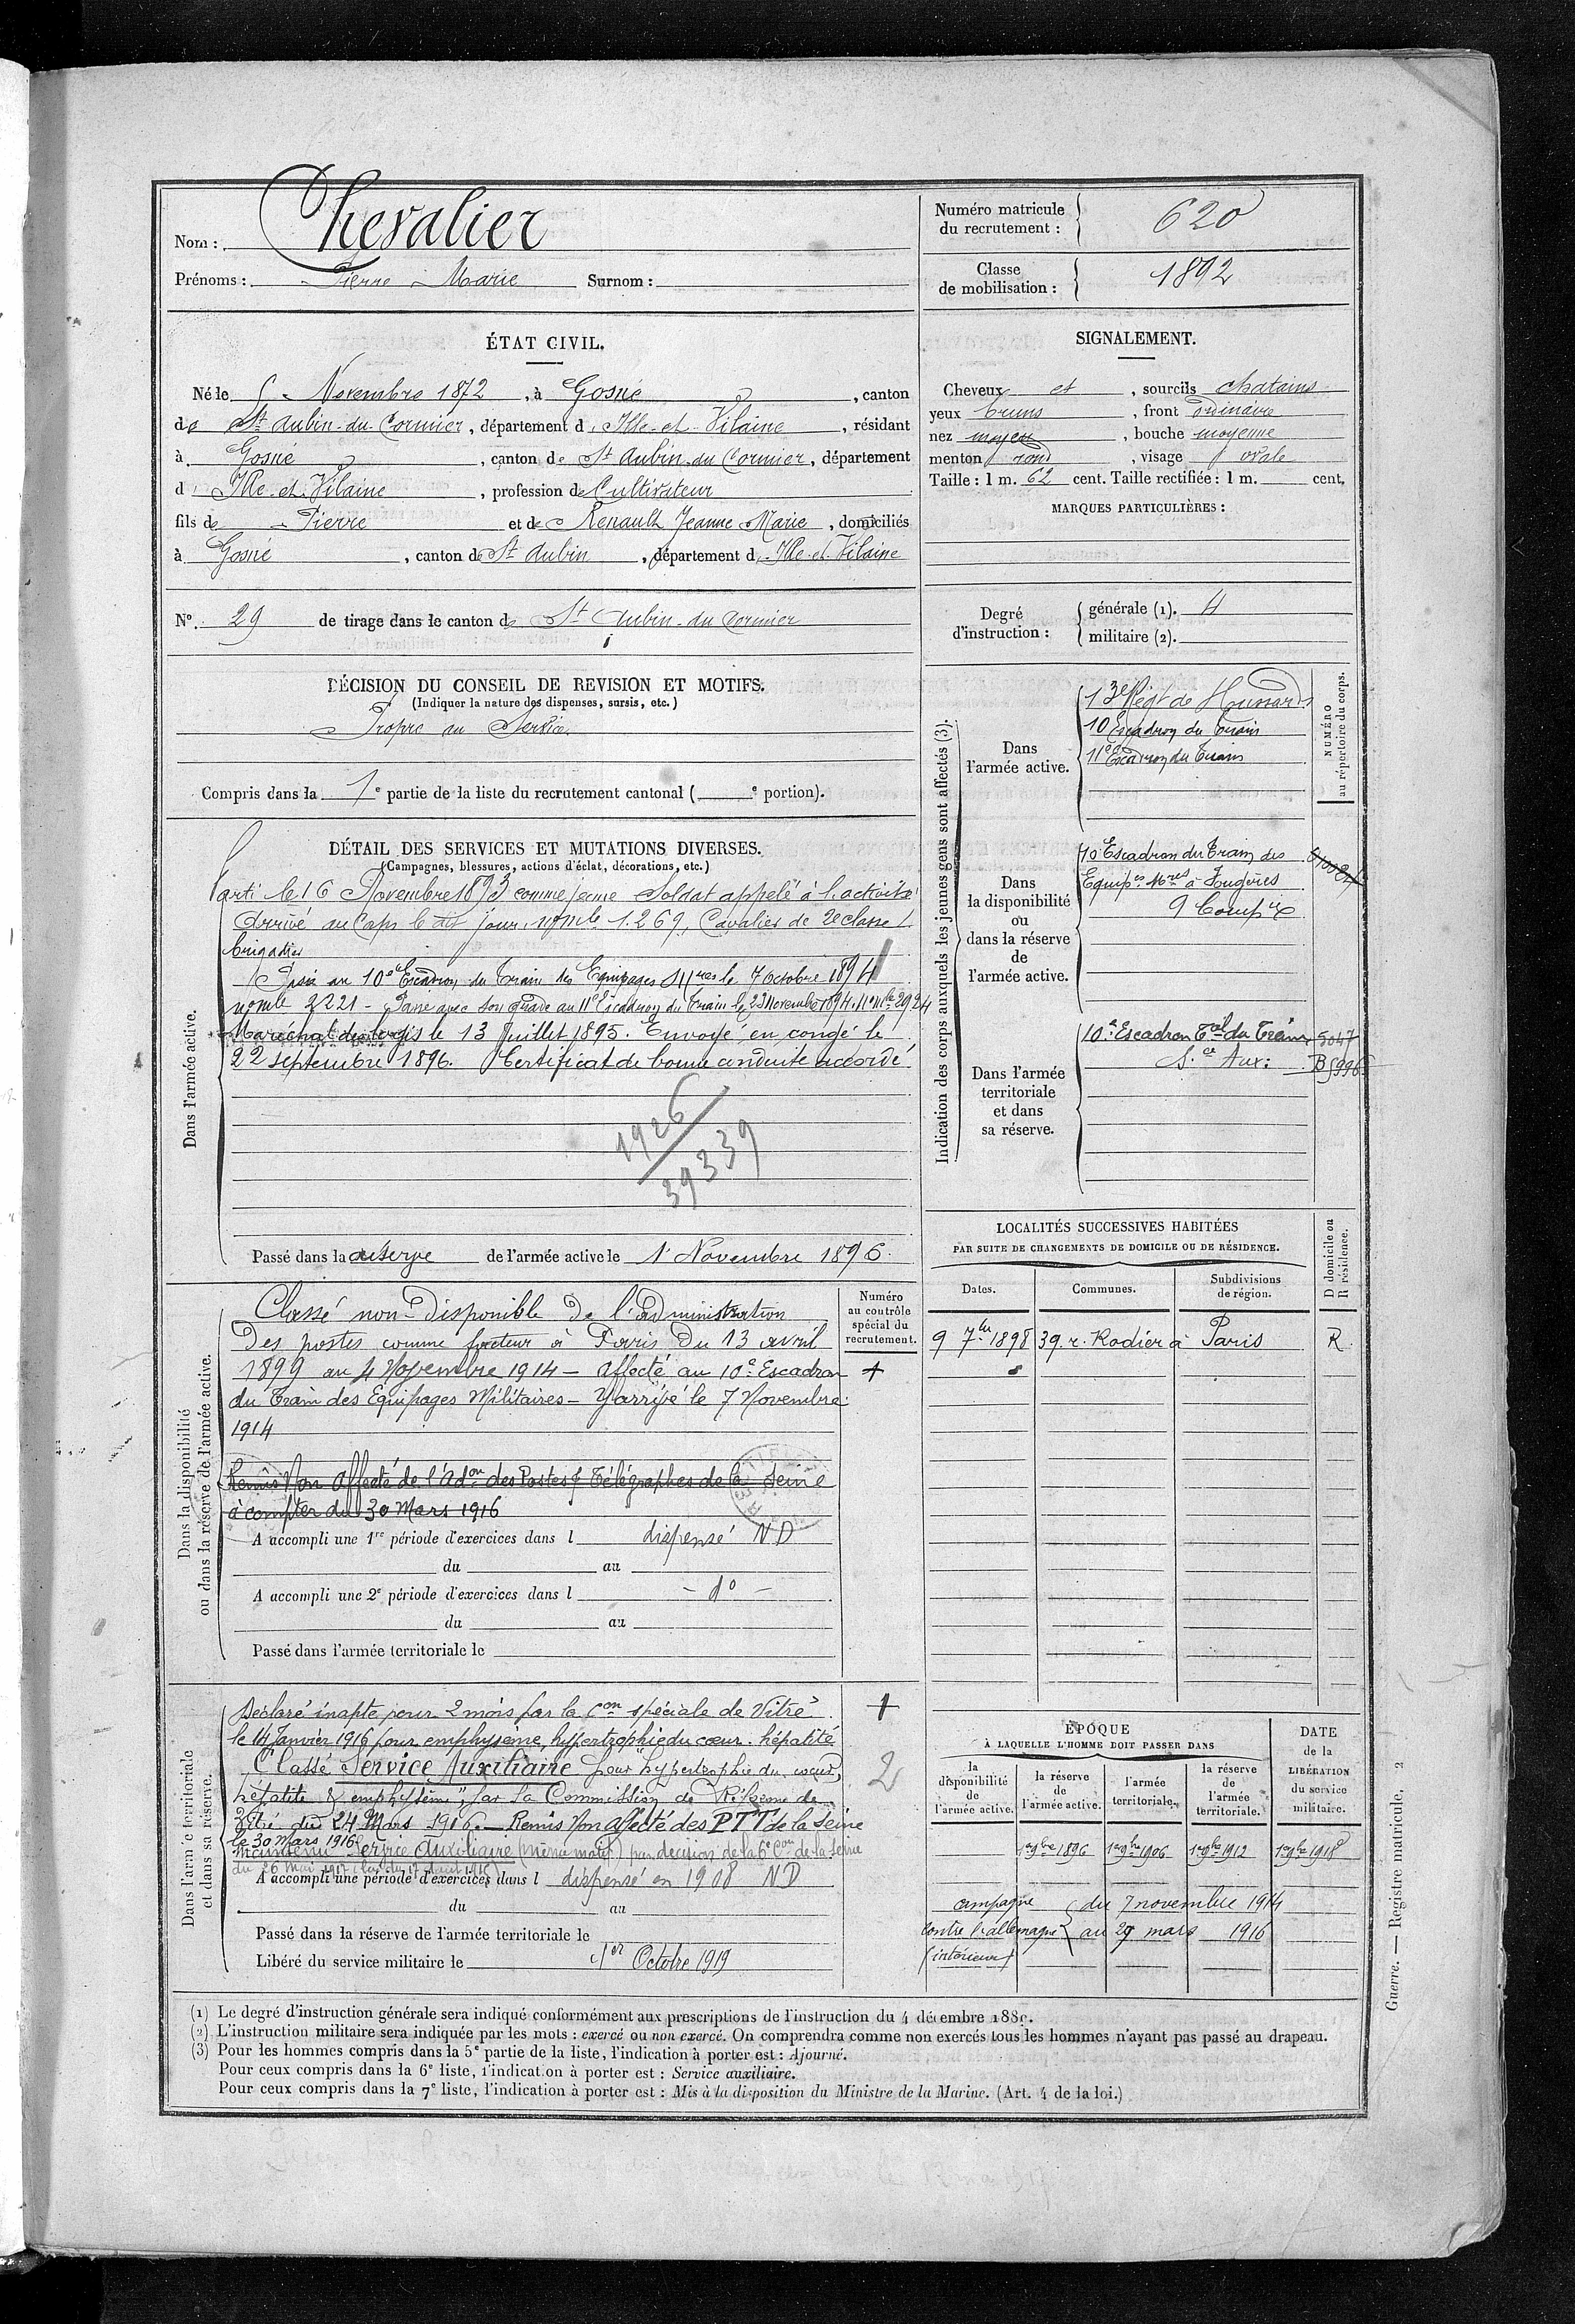 Nom : Chevalier
Prénoms : Pierre Marie Surnom :
Numéro matricule du recrutement : 620
Classe de mobilisation : 1892
ÉTAT CIVIL.
Né le 5 Novembre 1872, à Gosné, canton
de St Aubin-du-Cormier, département d Ille-et-Vilaine, résidant
à Gosné, canton de St Aubin-du-Cormier, département
d Ille-et-Vilaine, profession de Cultivateur
fils de Pierre et de Renault Jeanne Marie, domiciliés
à Gosné, canton de St Aubin, département d Ille-et-Vilaine
N° 29 de tirage dans le canton de St Aubin-du-Cormier
SIGNALEMENT.
Cheveux et, sourcils chatains
yeux bruns, front ordinaire
nez moyen, bouche moyenne
menton rond, visage ovale
Taille : 1 m. 62 cent. Taille rectifiée : 1 m. cent.
MARQUES PARTICULIÈRES :
Degré d'instruction :
générale (1). 4
militaire (2).
DÉCISION DU CONSEIL DE REVISION ET MOTIFS.
(Indiquer la nature des dispenses, sursis, etc.)
Propre au Service.
Compris dans la 1e partie de la liste du recrutement cantonal ( e portion).
DÉTAIL DES SERVICES ET MUTATIONS DIVERSES.
(Campagnes, blessures, actions d'éclat, décorations, etc.)
Dans l'armée active.
Parti le 16 Novembre 1893 comme jeune Soldat appelé à l'activité
Arrivé au Corps le dit jour, n° mle 1.269, Cavalier de 2e classe
brigadier
Passé au 10e Escadron du Train des Equipages Mres le 7 octobre 1894
n° mle 3221 - Passé avec son grade au 11e Escadron du Train le 23 Novembre 1894, n° mle 2924
Maréchal des logis le 13 Juillet 1895. Envoyé en congé le
22 septembre 1896. Certificat de bonne conduite accordé.
1926
39339
Passé dans la réserve de l'armée active le 1r Novembre 1896.
Indication des corps auxquels les jeunes gens sont affectés (3).
NUMÉRO au répertoire du corps.
Dans l'armée active.
13e Régt de Hussards
10 Escadron du train
11e Escadron du train
Dans la disponibilité ou dans la réserve de l'armée active.
10 Escadron du Train des
Equipes Mres à Fougères
9 Compie
Dans l'armée territoriale et dans sa réserve.
10e Escadron Tal du Train 5047
S.ce Aux :
LOCALITÉS SUCCESSIVES HABITÉES
PAR SUITE DE CHANGEMENTS DE DOMICILE OU DE RÉSIDENCE.
Dates. Communes. Subdivisions de région. D domicile ou R résidence.
9 7bre 1898 39. r. Rodier à Paris R
Dans la disponibilité ou dans la réserve de l'armée active.
Numéro au contrôle spécial du recrutement.
Classé non-disponible de l'administration
Des postes comme facteur à Paris Du 13 avril
1899 au 4 Novembre 1914 - Affecté au 10e Escadron
du Train des Equipages Militaires - Y arrivé le 7 Novembre
1914
Remis Non Affecté de l'Adon des Postes & Télégraphes de la Seine
à compter du 30 Mars 1916
A accompli une 1re période d'exercices dans l dispensé ND
du au
A accompli une 2e période d'exercices dans l - d° -
du au
Passé dans l'armée territoriale le
Dans l'armée territoriale et dans sa réserve.
Déclaré inapte pour 2 mois par la Con spéciale de Vitré
le 14 Janvier 1916 pour emphysème, hypertrophie du cœur. hépatite
2
Classé Service Auxiliaire pour "hypertrophie du cœur,
hépatite & emphysème", par la Commission de Réforme de
Vitré du 24 Mars 1916. - Remis Non affecté des PTT de la Seine
le 30 Mars 1916
Maintenu Service Auxiliaire (même motif) par décision de la 6e Con de la Seine
du 26 Mai 1917
A accompli une période d'exercices dans l dispensé en 1908 ND
du au
Passé dans la réserve de l'armée territoriale le
Libéré du service militaire le 1er Octobre 1919
ÉPOQUE
À LAQUELLE L'HOMME DOIT PASSER DANS
DATE de la LIBÉRATION du service militaire.
la disponibilité de l'armée active. la réserve de l'armée active. l'armée territoriale. la réserve de l'armée territoriale.
1er 9bre 1896 1er 9bre 1906 1er 9bre 1912 1er 9bre 1918
campagne du 7 novembre 1914
contre l'allemagne au 29 mars 1916
(intérieur)
(1) Le degré d'instruction générale sera indiqué conformément aux prescriptions de l'instruction du 4 décembre 1889.
(2) L'instruction militaire sera indiquée par les mots : exercé ou non exercé. On comprendra comme non exercés tous les hommes n'ayant pas passé au drapeau.
(3) Pour les hommes compris dans la 5e partie de la liste, l'indication à porter est : Ajourné.
Pour ceux compris dans la 6e liste, l'indication à porter est : Service auxiliaire.
Pour ceux compris dans la 7e liste, l'indication à porter est : Mis à la disposition du Ministre de la Marine. (Art. 4 de la loi.)
Guerre. — Registre matricule. 2